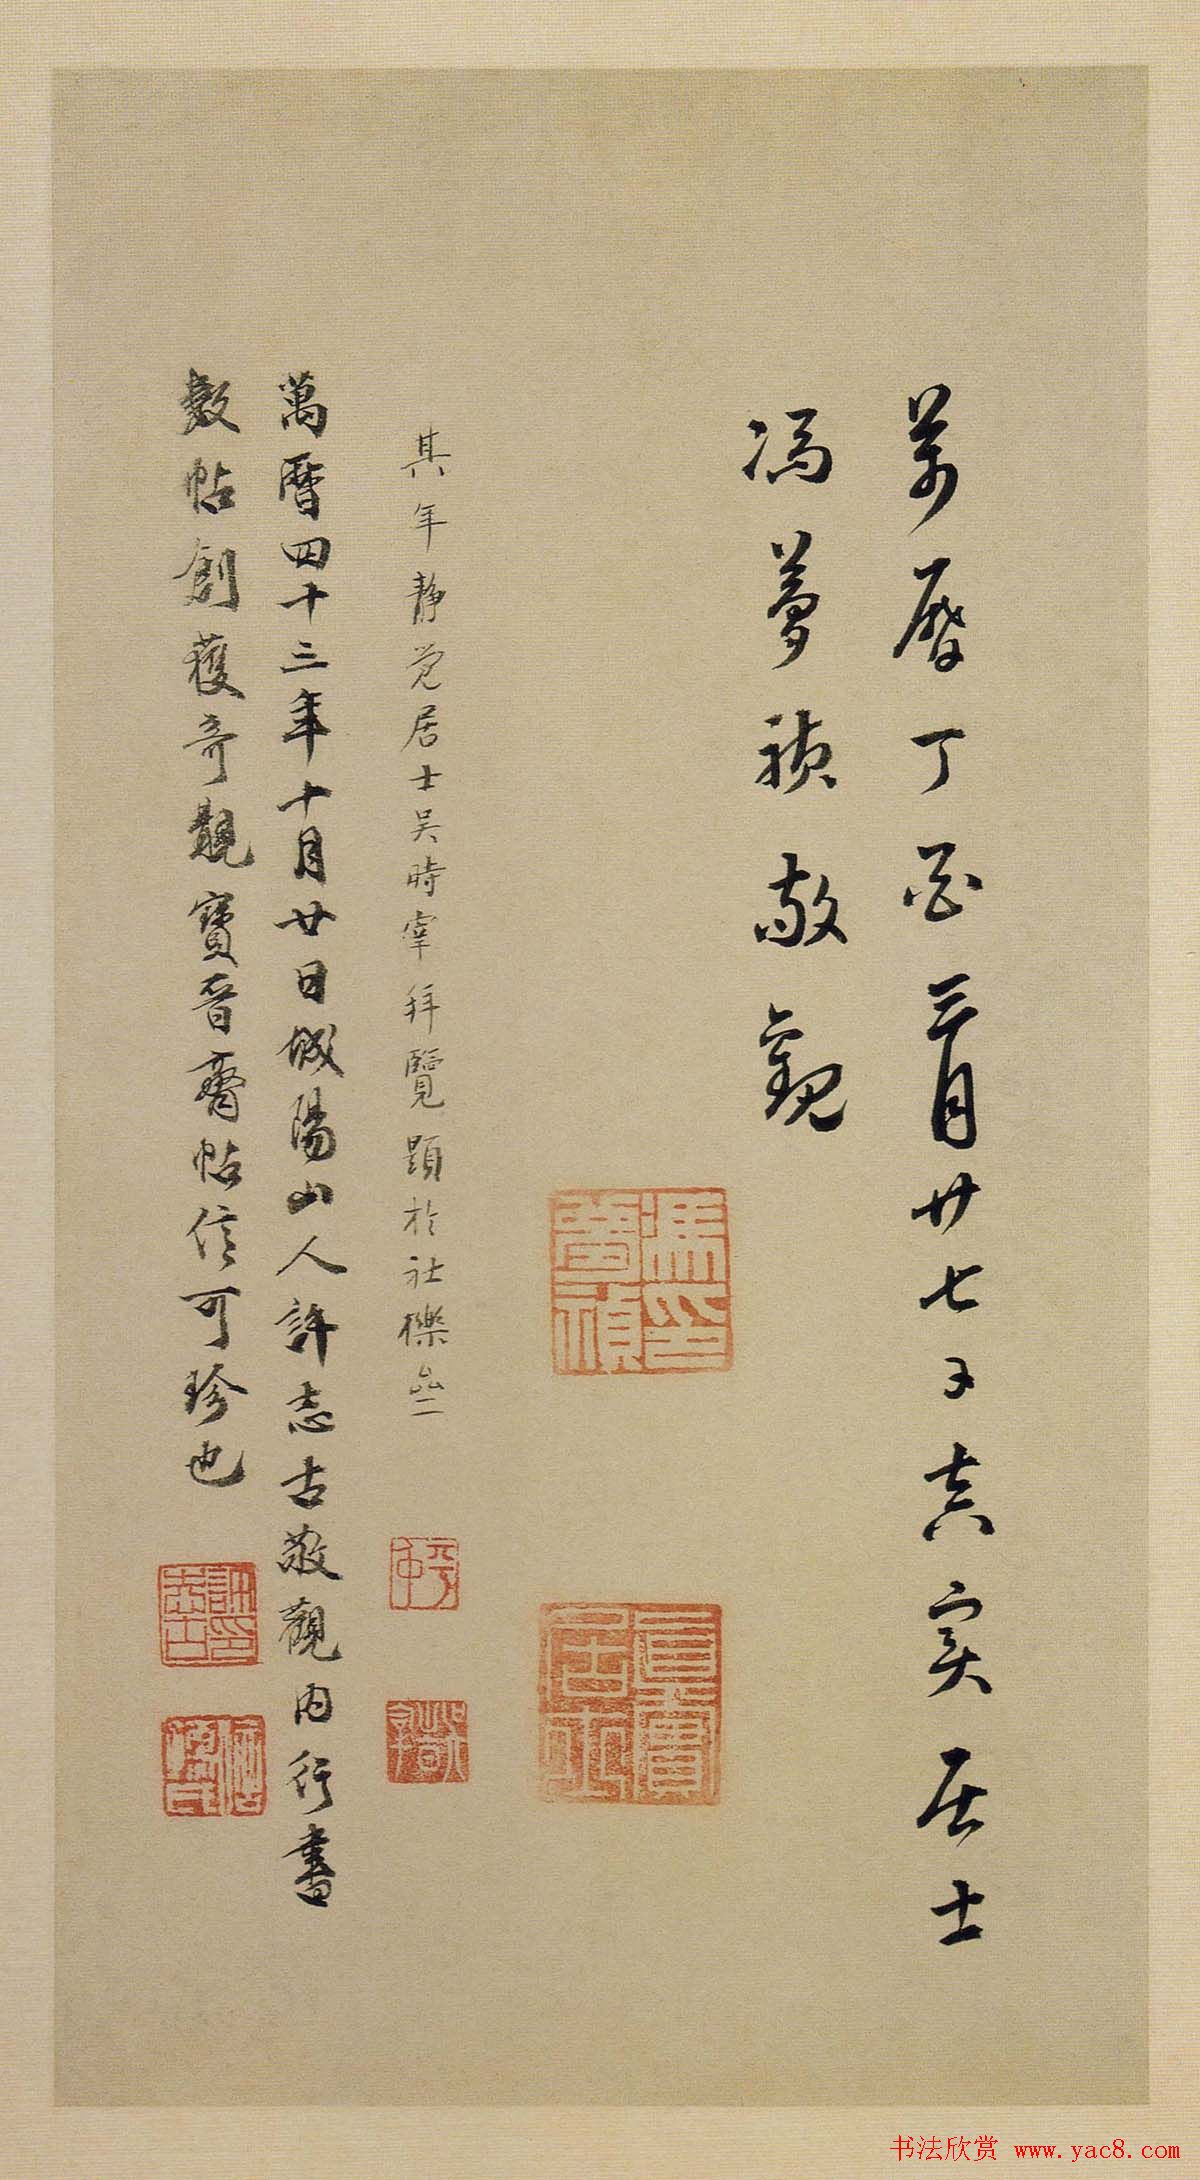 萬曆丁酉三月廿七日真實居士
馮夢禎敬觀
馮印夢禎
真實居士
其年静覺居士吴時宰拜覽題於社櫟亝
萬曆四十三年十月廿日城陽山人許志古敬觀内行書
數帖創獲奇觀寶晉齋帖信可珍也
許印志古
书法欣赏 www.yac8.com